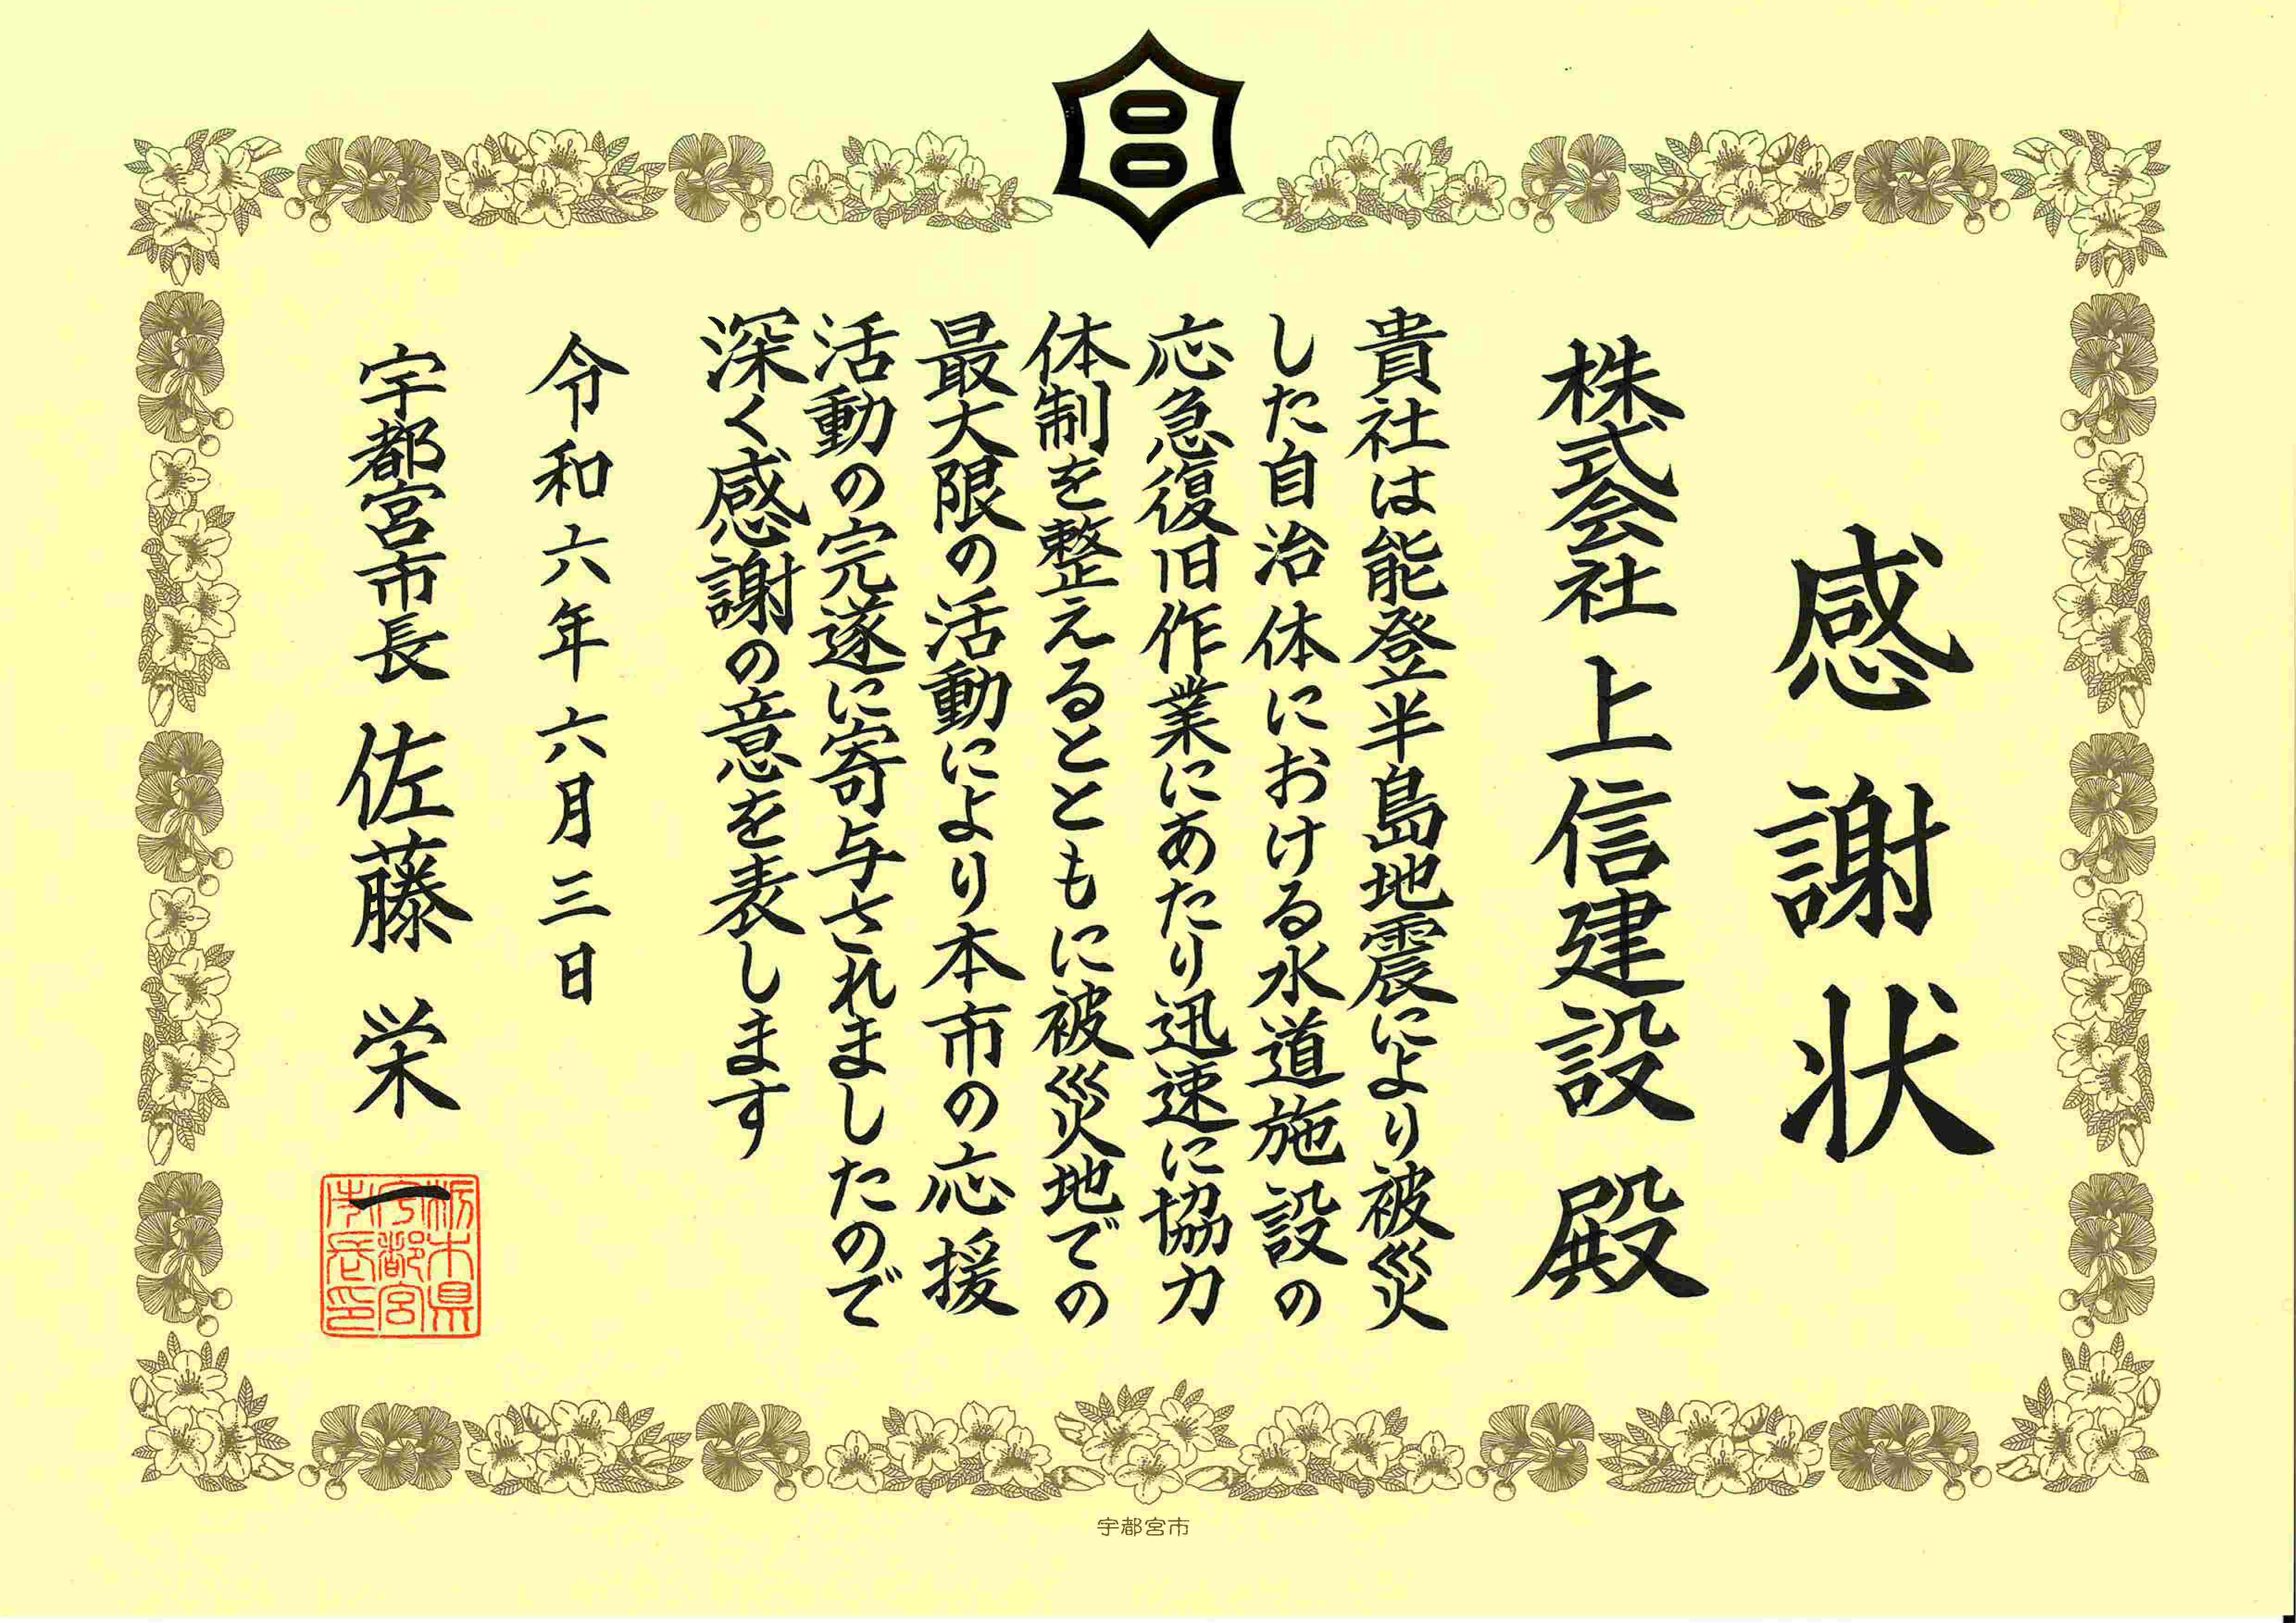 感謝状
株式会社 上信建設 殿
貴社は能登半島地震により被災
した自治体における水道施設の
応急復旧作業にあたり迅速に協力
体制を整えるとともに被災地での
最大限の活動により本市の応援
活動の完遂に寄与されましたので
深く感謝の意を表します
令和六年六月三日
宇都宮市長 佐藤栄一
栃木県
宇都宮
市長印
宇都宮市